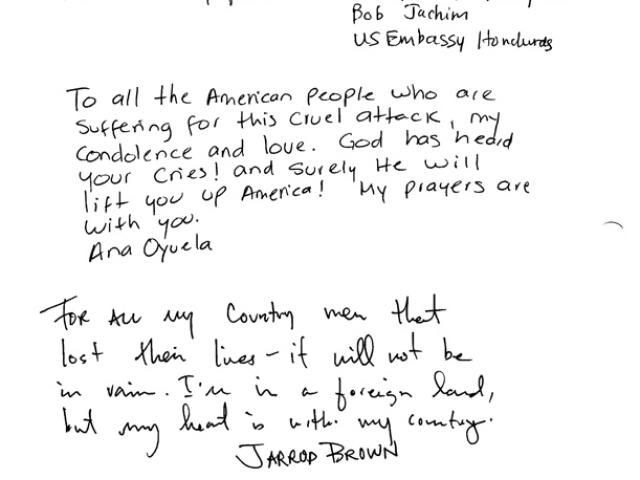 Bob Jachim
US Embassy Honduras
To all the American people who are
suffering for this cruel attack, my
condolence and love. God has heard
your cries! and surely He will
lift you up America! My prayers are
with you.
Ana Oyuela
For all my country men that
lost their lives – it will not be
in vain. I'm in a foreign land,
but my heart is with my country.
JARROD BROWN